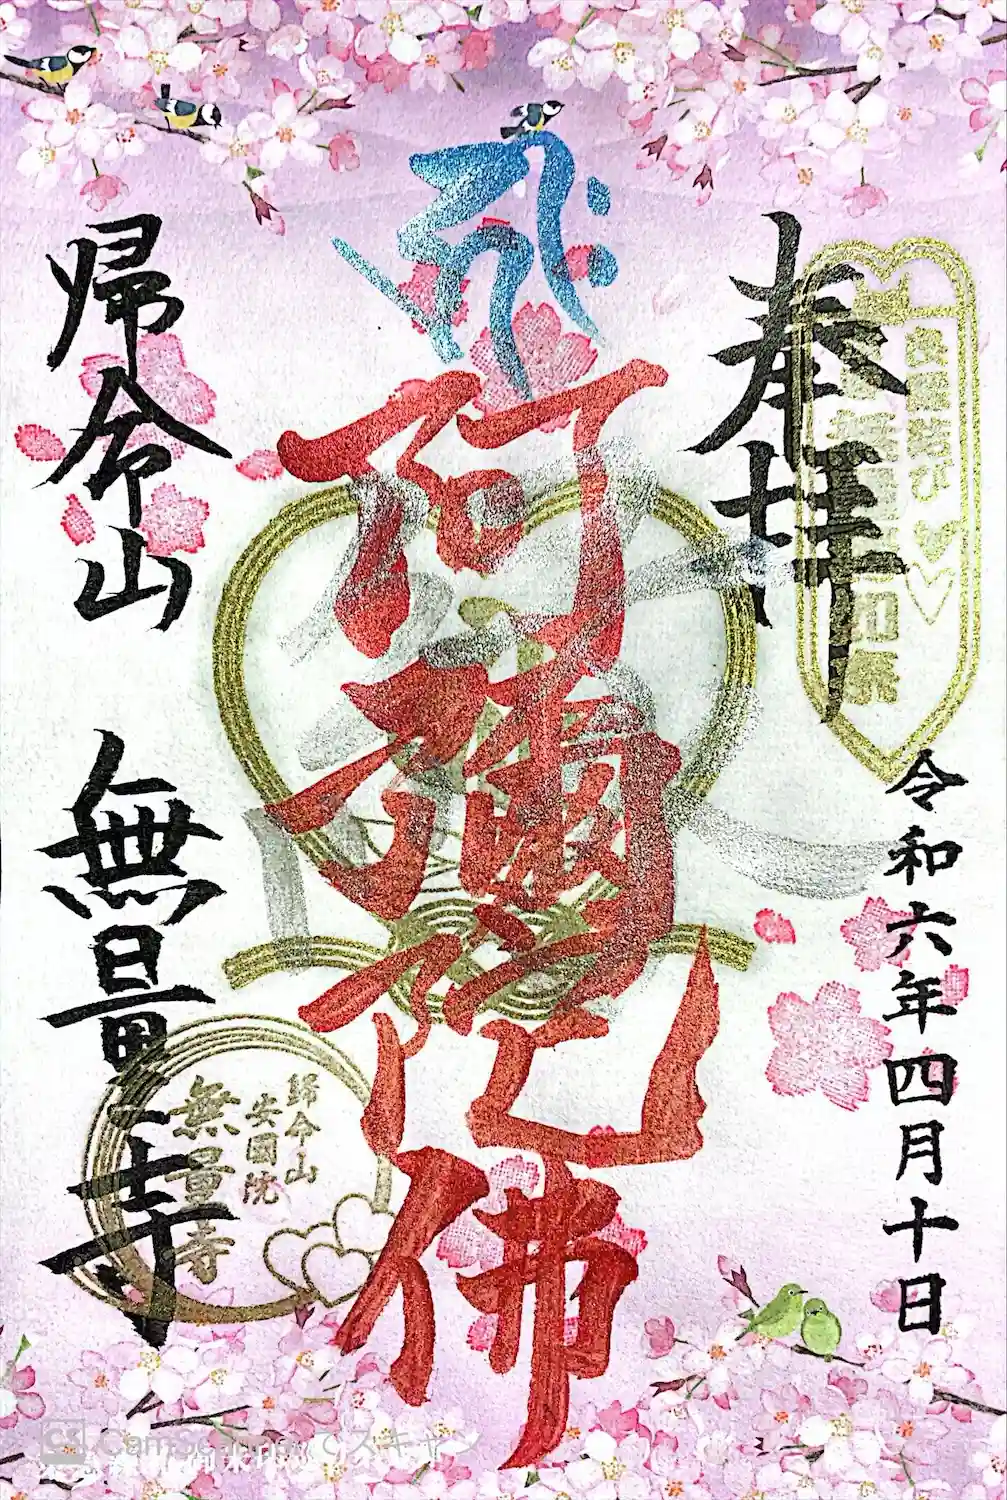 奉拝
令和六年四月十日
阿彌陀佛
帰命山
無量寺
歸命山
安国院
無量寺
CamScannerでスキャン